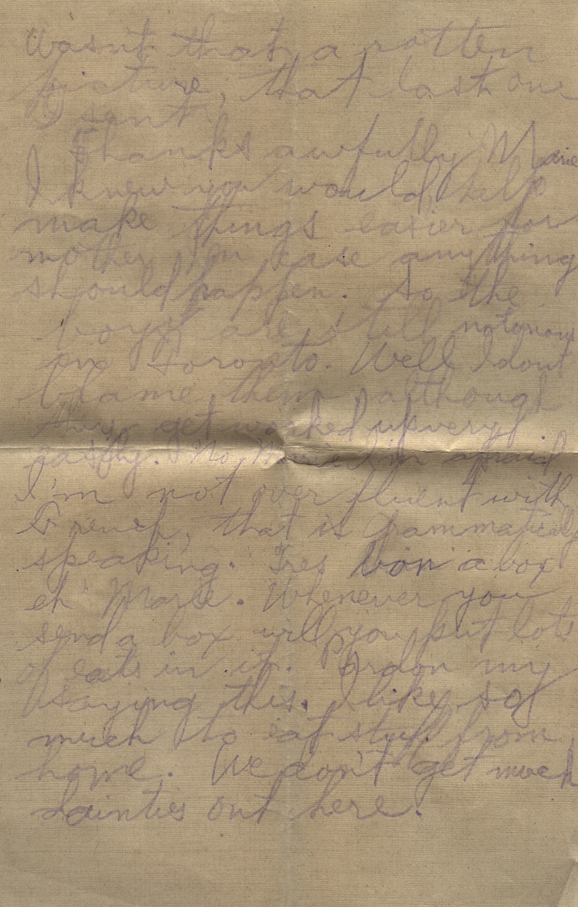 Wasn't that a rotten
picture, that last one
I sent.
Thanks awfully Marie
I knew you would help
make things easier for
mother in case anything
should happen. So the
boys are still
in Toronto. Well I don't
blame them although
they get worked up very
easily. No, Marie I'm afraid
I'm not over fluent with
French, that is grammatically
speaking. Tres bon a box
eh Marie. Whenever you
send a box will you put lots
of eats in it. Pardon my
saying this. I like so
much to eat stuff from
home. We don't get much
dainties out here.